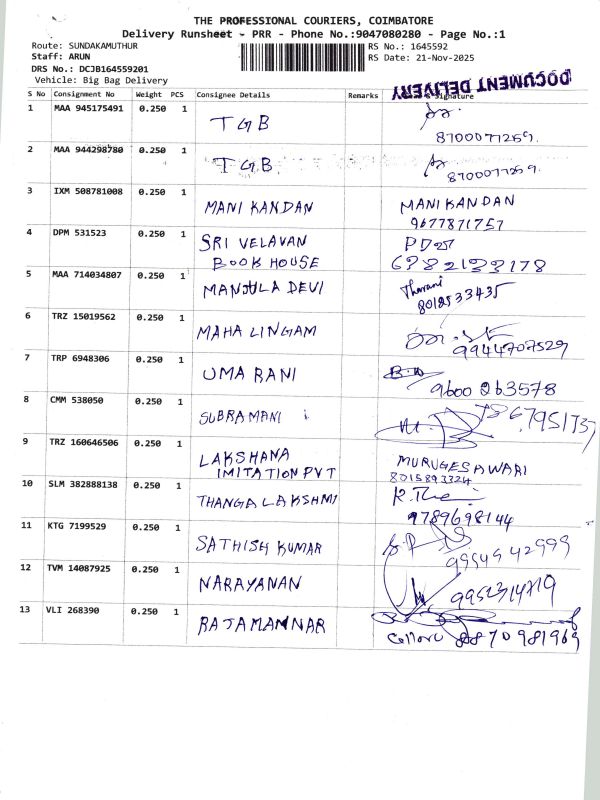 THE PROFESSIONAL COURIERS, COIMBATORE
Delivery Runsheet - PRR - Phone No.:9047080280 - Page No.:1
Route: SUNDAKAMUTHUR
RS No.: 1645592
Staff: ARUN
RS Date: 21-Nov-2025
DRS No.: DCJB164559201
Vehicle: Big Bag Delivery
DOCUMENT DELIVERY
S No Consignment No Weight PCS Consignee Details Remarks Signature
1 MAA 945175491 0.250 1 TGB
8700077269.
2 MAA 944298780 0.250 1 TGB
8700077269.
3 IXM 508781008 0.250 1 MANI KANDAN MANIKANDAN
9677871757
4 DPM 531523 0.250 1 SRI VELAVAN
BOOK HOUSE
5 MAA 714034807 0.250 1 MANJULA DEVI Tharani
8012533435
6 TRZ 15019562 0.250 1 MAHA LINGAM
9944707529
7 TRP 6948306 0.250 1 UMA RANI
9600263578
8 CMM 538050 0.250 1 SUBRAMANI
9 TRZ 160646506 0.250 1 LAKSHANA
IMITATION PVT
MURUGESAWARI
8015893324
10 SLM 382888138 0.250 1 THANGA LAKSHMI
9789698144
11 KTG 7199529 0.250 1 SATHISH KUMAR
9954942999
12 TVM 14087925 0.250 1 NARAYANAN
9952314719
13 VLI 268390 0.250 1 RAJAMANNAR
8870981969